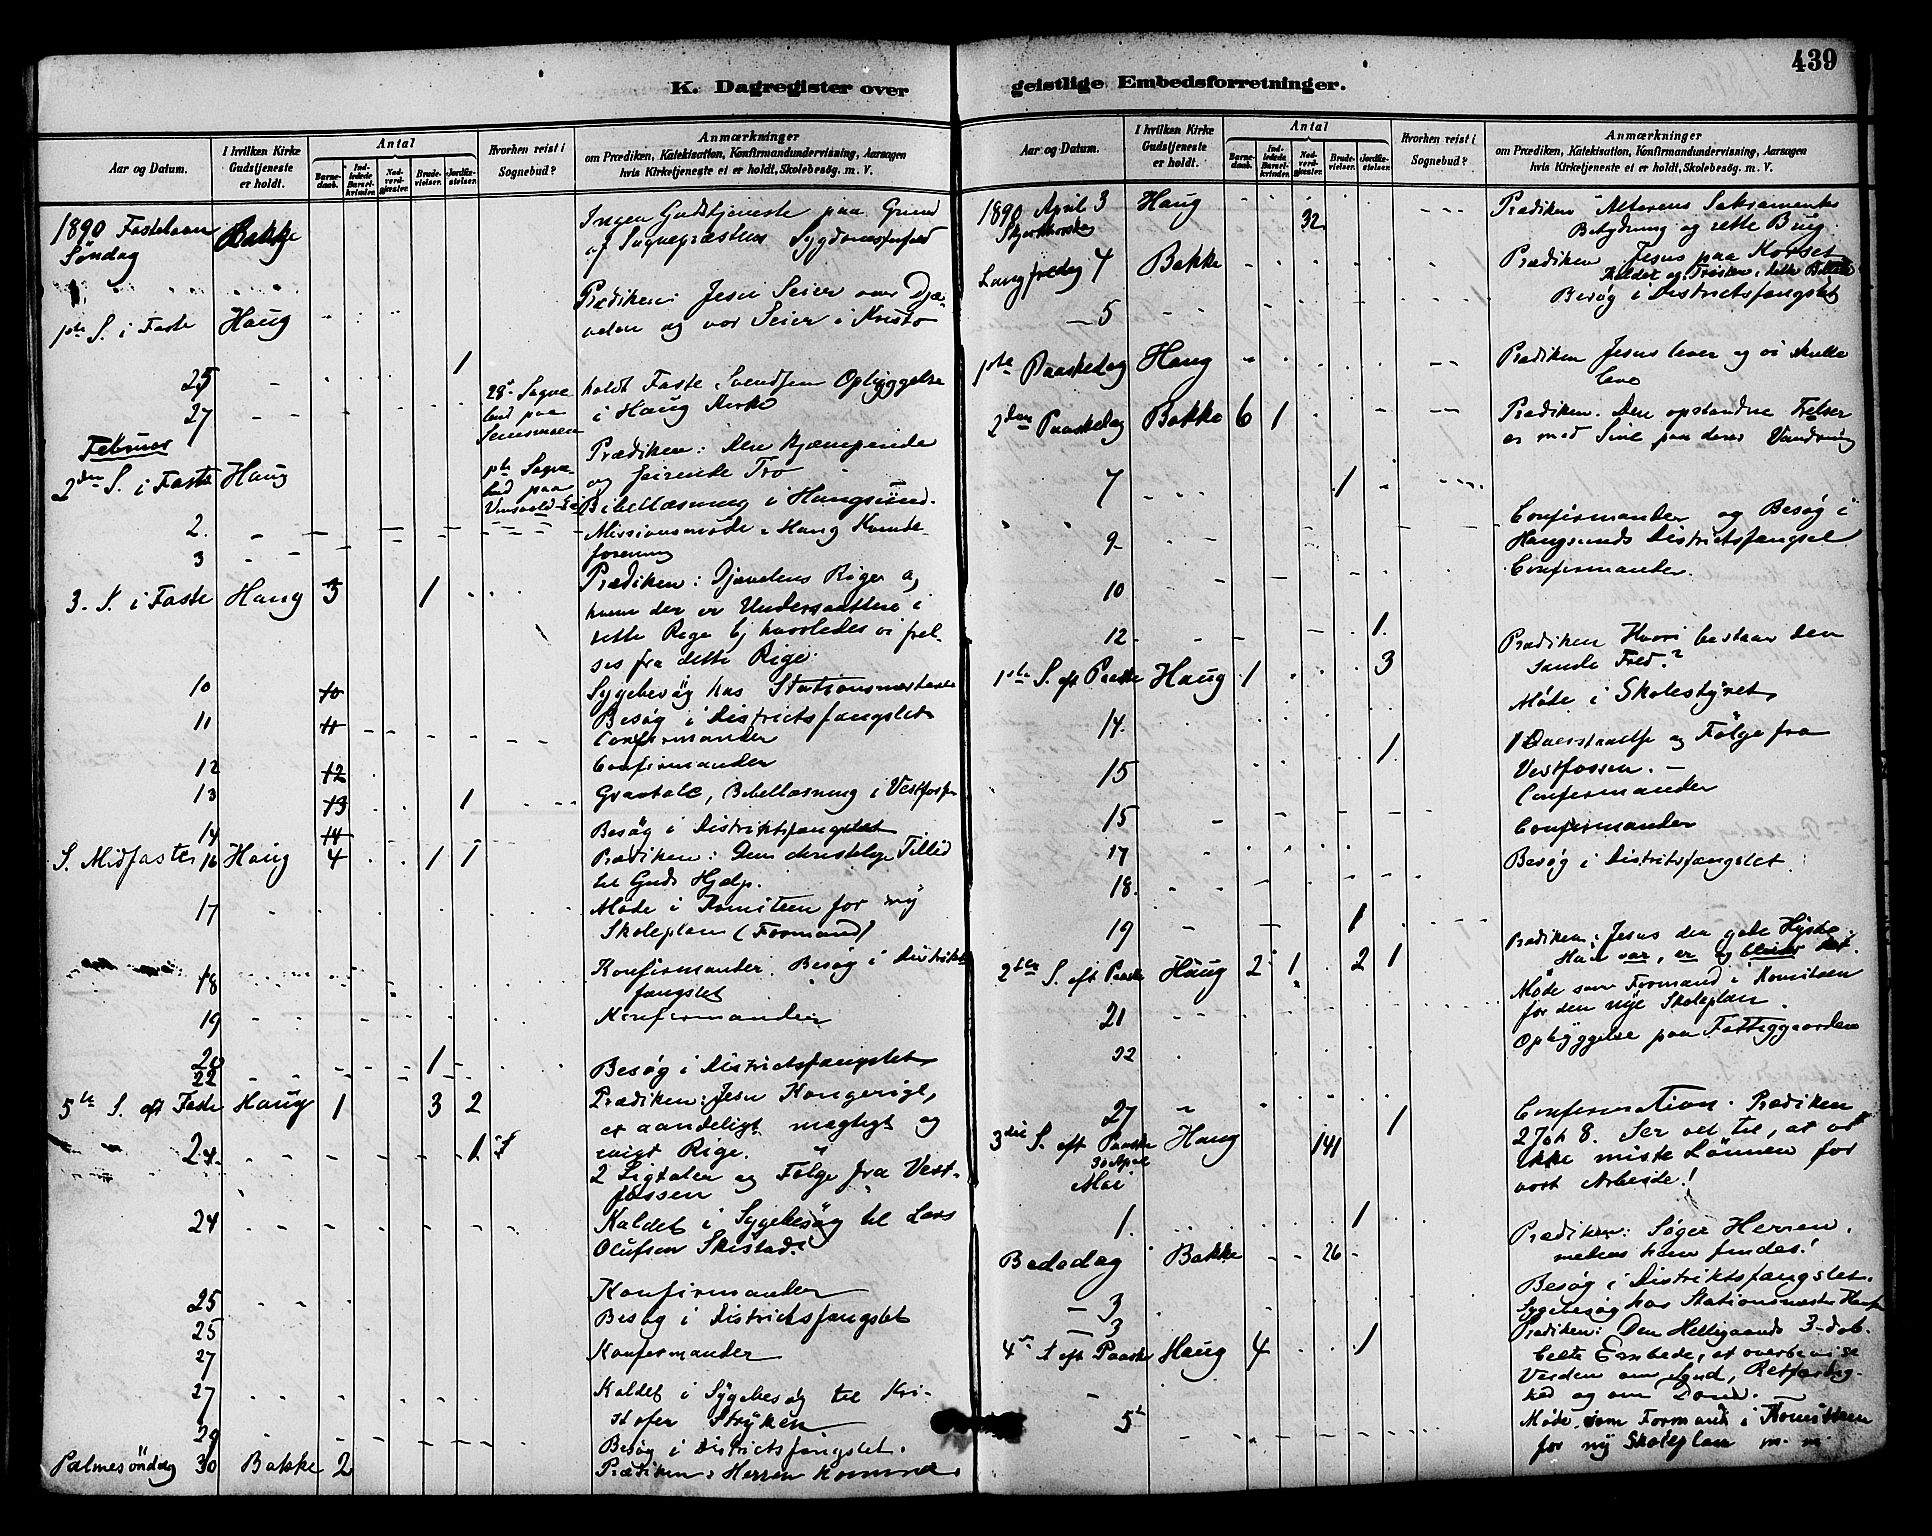 439
K. Dagregister over geistlige Embedsforretninger.
Aar og Datum. I hvilken Kirke Gudstjeneste er holdt. Antal Barnedaab. Indledede Barselkvinder. Nadverdgjæster. Brudevielser. Jordfæstelser. Hvorhen reist i Sognebud? Anmærkninger om Prædiken, Katekisation, Konfirmandundervisning, Aarsagen hvis Kirketjeneste ei er holdt, Skolebesøg. m. V.
1890 Fastelavn Bakke Ingen Gudstjeneste paa Grund
Søndag af Sognepræstens Sygdomsforfald
Prædiken: Jesu Seier over Djæ-
1ste S. i Faste Haug velen og vor Seier i Kristo
25 1
28de Sogne- holdt Faste Svendsen Opbyggelse
27 bud paa i Haug Kirke
Februar Prædiken: Den kjæmpende
2den S. i Faste Haug 1ste Sogne- og seirende Tro
bud paa Bibellæsning i Haugsund.
2. Missionsmøde i Haug Kvinde-
3 forening
3. S. i Faste Haug 3 1 Prædiken: Djævelens Rige a,
hvem der er Undersaatter i
dette Rige b, hvorledes vi frel-
ses fra dette Rige.
10 10 Sygebesøg hos Stationsmesteren
11 11 Besøg i Districtsfængslet
Confirmander
12 12 Confirmander
13 13 1 Gravtale, Bibellæsning i Vestfossen
14 14 Besøg i Distriktsfængslet
S. Midfaste 16 Haug 4 1 1 Prædiken: Den christelige Tillid
til Guds Hjelp.
17 Møde i Komiteen for ny
Skoleplan (Formand)
18 Konfirmander. Besøg i Distrikts
fængslet
19 Konfirmander
20 1
22 Besøg i Districtsfængslet
5te S. eft Faste Haug 1 3 2 Prædiken: Jesu Kongerige,
et aandeligt mægtigt og
24. 1 evigt Rige.
2 Ligtaler og Følge fra Vest-
fossen
24 Kaldet i Sygebesøg til Lars
Olufsen Skistad.
25 Konfirmander
25 Besøg i Districtsfængslet
27 Konfirmander
27 Kaldet i Sygebesøg til Kri-
stofer Stryken
29 Besøg i Districtsfængslet.
Palmesöndag 30 Bakke 2 Prædiken: Herren kommer.
Aar og Datum. I hvilken Kirke Gudstjeneste er holdt. Antal Barnedaab. Indledede Barselkvinder. Nadverdgjæster. Brudevielser. Jordfæstelser. Hvorhen reist i Sognebud? Anmærkninger om Prædiken, Katekisation, Konfirmandundervisning, Aarsagen hvis Kirketjeneste ei er holdt, Skolebesøg. m. V.
1890 April 3 Haug 32 Prædiken Alterens Sakramentes
Skjærthorsdag Betydning og rette Brug.
Langfredag 4 Bakke Prædiken Jesus paa Korset
5 Besøg i Districtsfængslet
1ste Paaskedag Haug Prædiken Jesus lever og vi skulle
leve
2den Paaskedag Bakke 6 1 Prædiken. Den opstandne Frelser
er med Sine paa deres Vandring
7 1
9 Confirmander og Besøg i
Haugsunds Districtsfængsel
10 Confirmander.
12. 1.
1ste S. eft Paaske Haug 1 3 Prædiken Hvori bestaar den
sande Fred?
14. Møde i Skolestyret
15 1. og Følge fra
Vestfossen. –
15 Confirmander
17 Confirmander
18. Besøg i Districtsfængslet.
19 1
2den S. eft Paaske Haug 2 1 2 1 Prædiken: Jesus den gode Hyrde.
Han var, er og bliver det.
21 Møde som Formand i Komiteen
for den nye Skoleplan.
22 Opbyggelse paa Fattiggaarden
27 1
3die S. eft Paaske Haug 141 Confirmation. Prædiken
30 April 2 Joh 8. Ser vel til, at vi
Mai ikke miste Lönnen for
vort Arbeide!
1. 1
Bededag Bakke 26 Prædiken: Søger Herren,
medens han findes!
3 Besøg i Distriktsfængslet.
3 Sygebesøg hos Stationsmester
4de S. eft Paaske Haug 4 1 Prædiken: Den Helligaands 3-dob-
belte Embede, at overbevise
Verden om Synd, Retfærdig-
hed og om Dom.
5te Møde som Formand i Komiteen
for ny Skoleplan m. m.